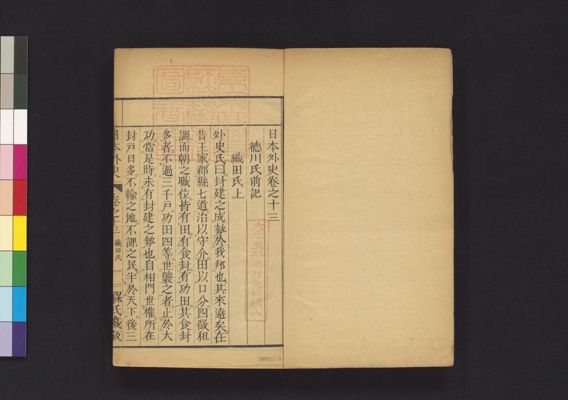 日本外史卷之十三
德川氏前記
織田氏上
外史氏曰封建之成勢於我邦也其來遠矣在
昔王家郡縣七道治以守介田以口分四徵租
調而朝之職位皆有田有食封有功田其食封
多者不過三千戶功田四等世襲之者止於大
功當是時未有封建之勢也自相門世權所在
封戶日多不輸之地不課之民半於天下後三
日本外史 卷之十三 織田氏 一